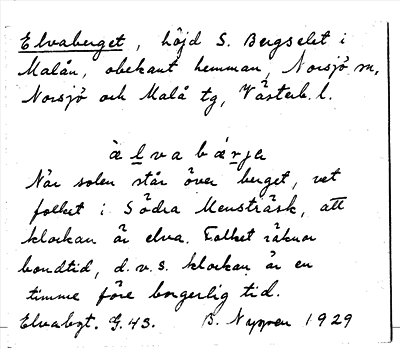 Elvaberget, höjd S. Bergselet i
Malån, obekant hemman, Norsjö sn,
Norsjö och Malå tg, Västerb. l.
älvabärja
När solen står över berget, vet
folket i Södra Mensträsk, att
klockan är elva. Folket räknar
bondtid, d.v.s. klockan är en
timme före borgerlig tid.
Elvabgt. G.43. B. Nygren 1929